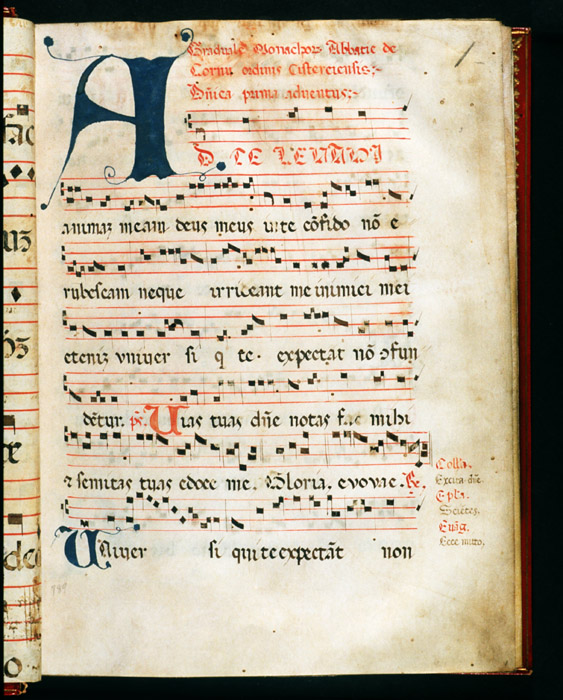 Graduale Monachorum Abbatie de
Cornu ordinis Cisterciensis:-
Dñica prima adventus:-
AD TE LEVAVI
animaʒ meam deus meus in te cõfido nõ e
rubescam neque irrideant me inimici mei
eteniʒ vniuer si q te. expectat nõ ↄfun
dẽtur. ps. Uias tuas dñe notas fac mihi
⁊ semitas tuas edoce me. Gloria. evovae. R.
Uniuer si qui te expectãt non
Collã.
Excita dñe.
Epla.
Scietes.
Euãg.
Ecce mitto.